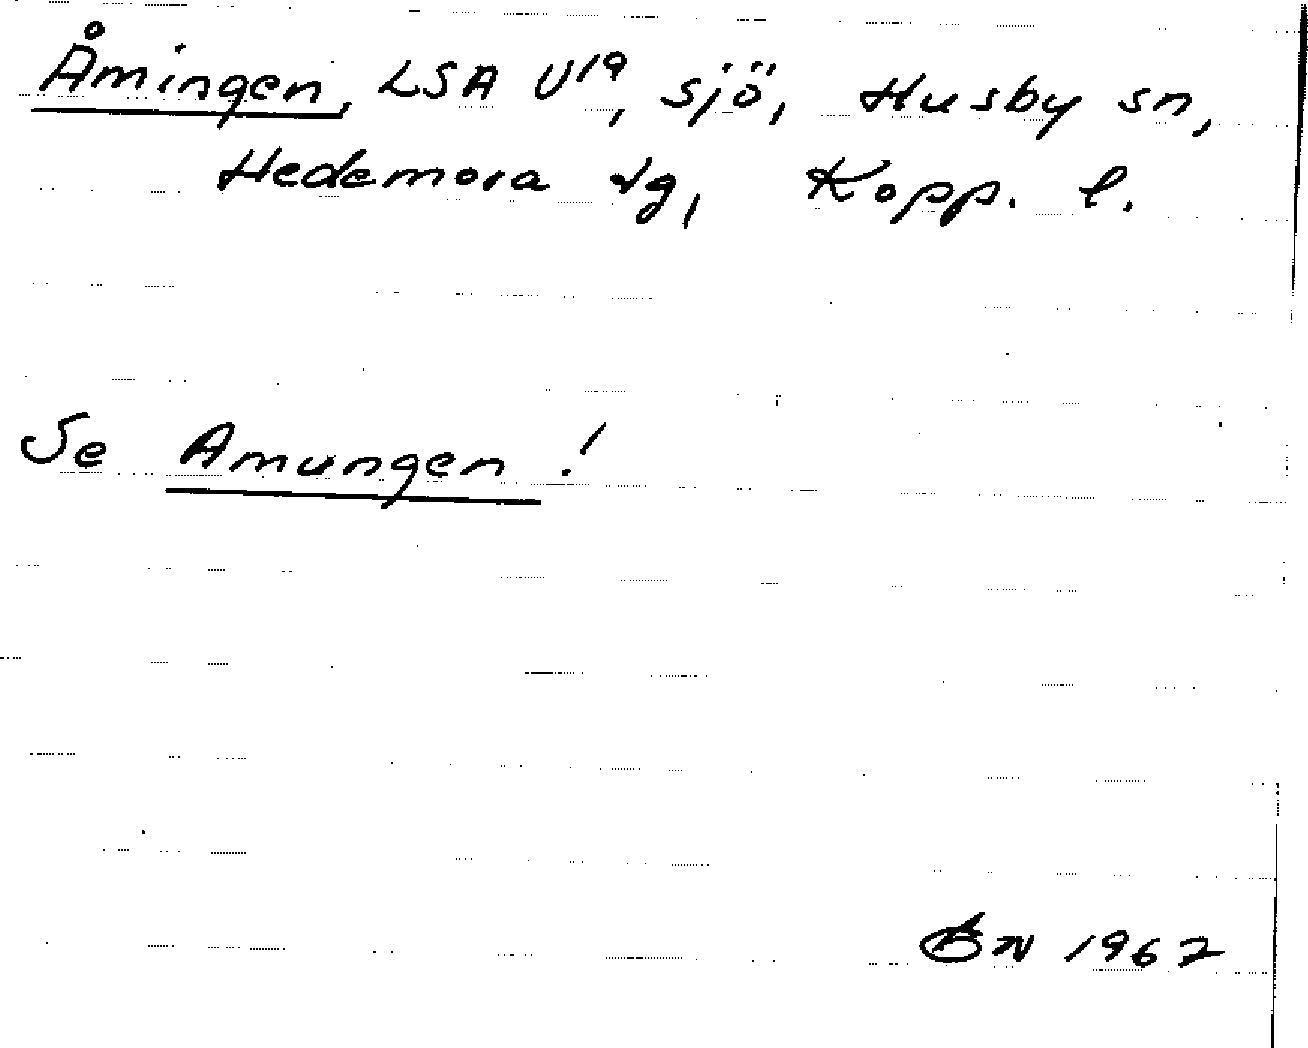 Åmingen, LSA U19, sjö, Husby sn,
Hedemora tg, Kopp. l.
Se Amungen!
1962